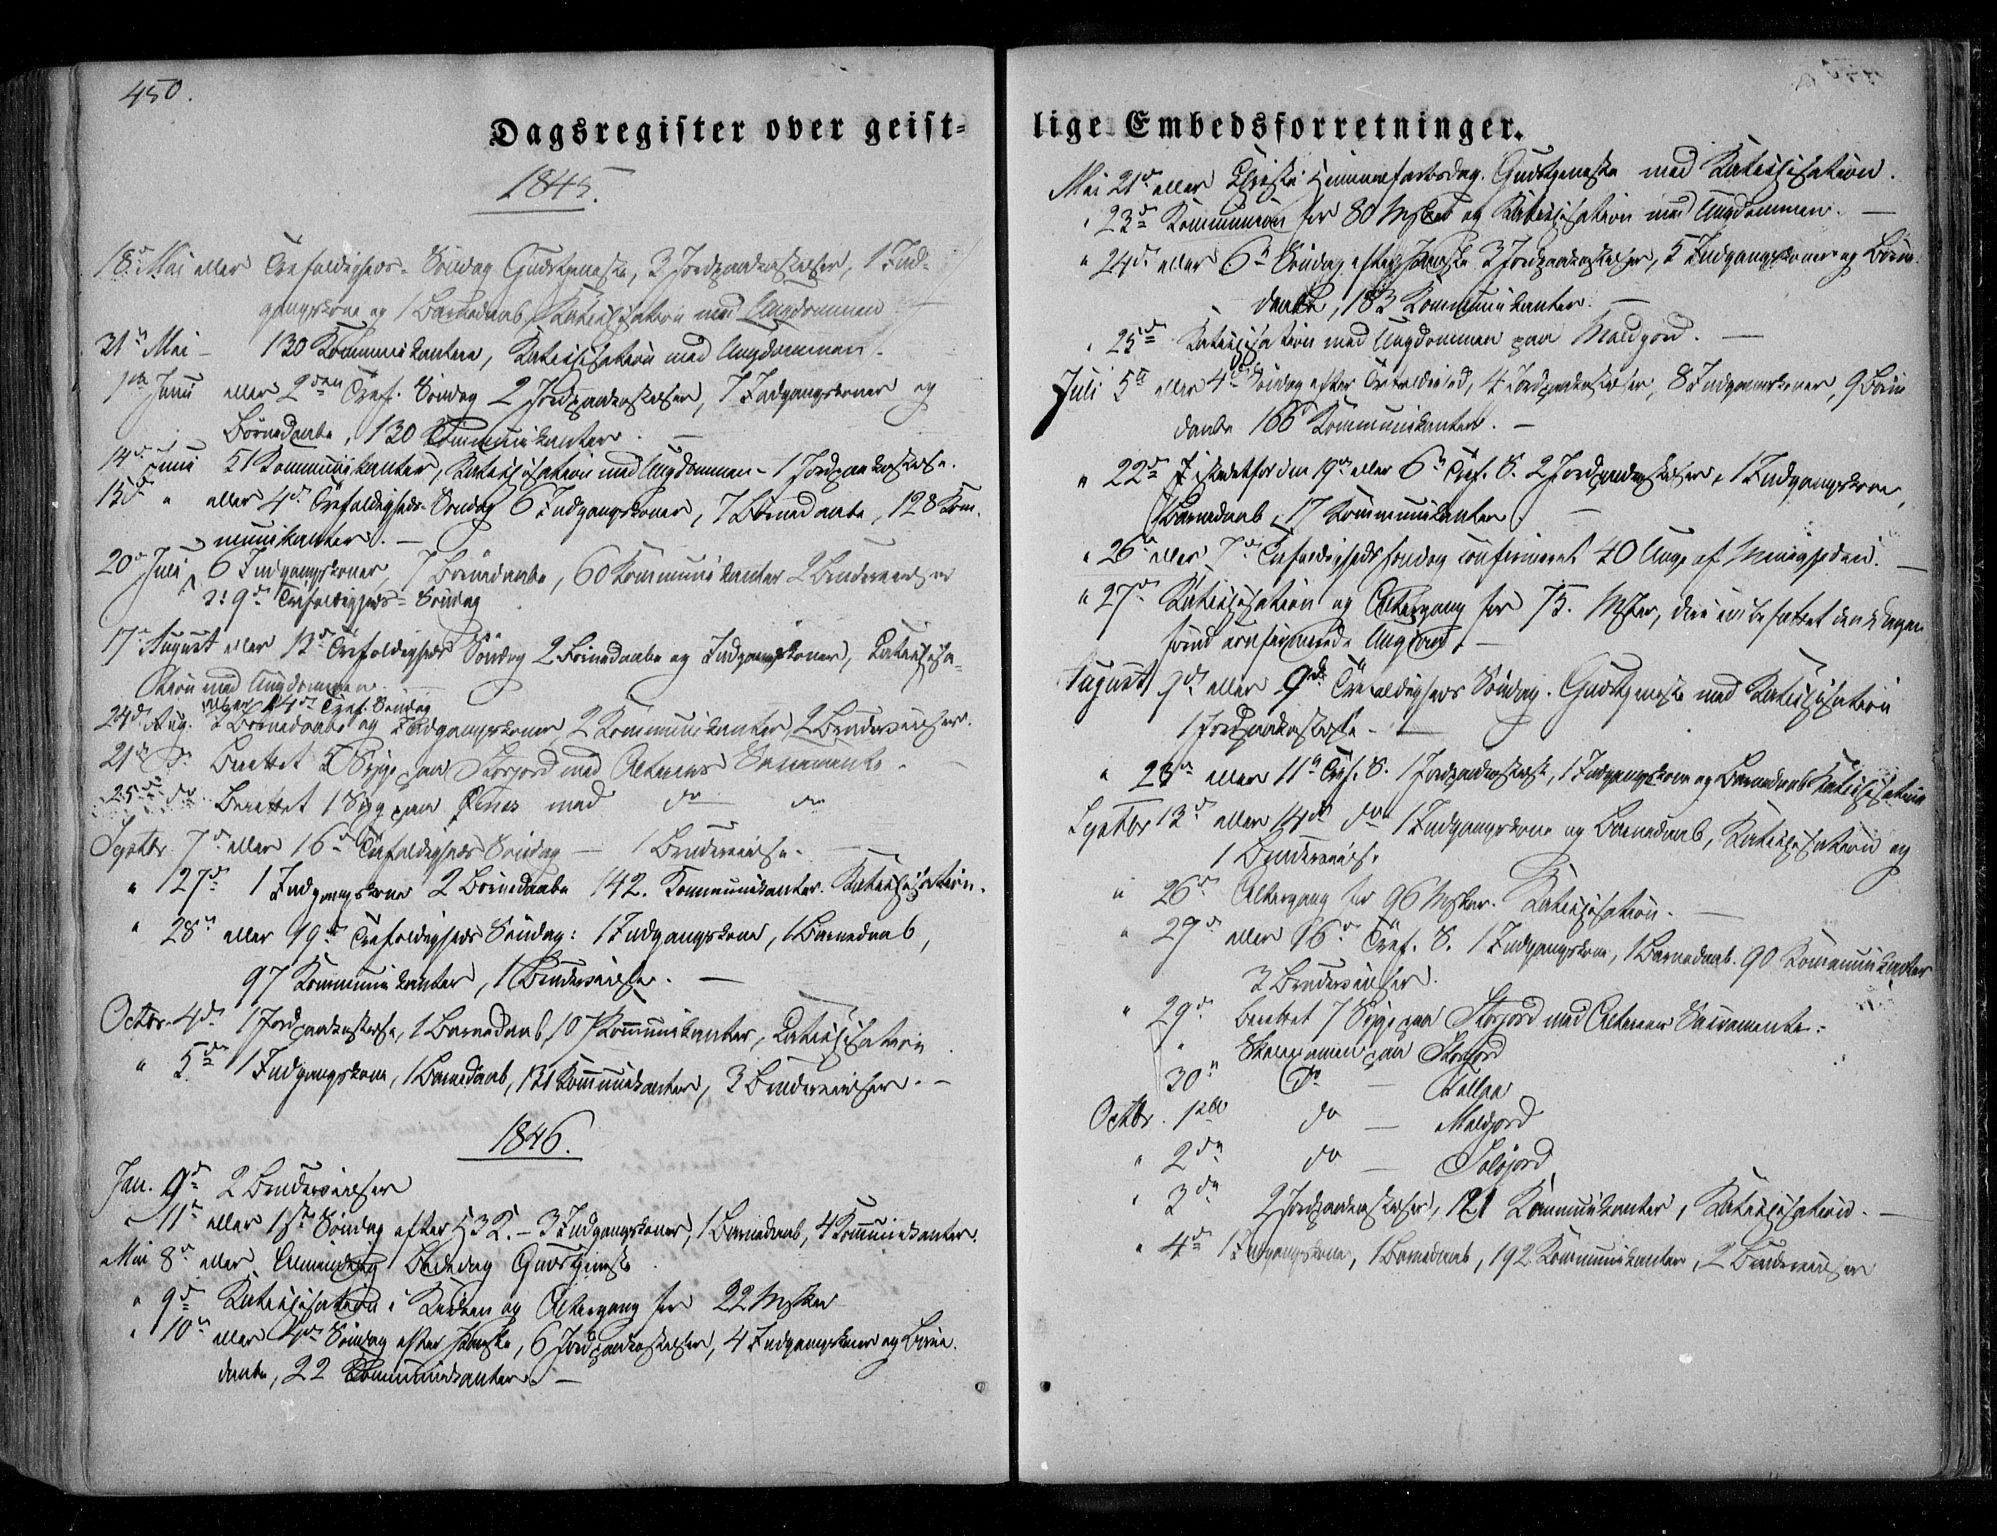 450.
Dagsregister over geist-
1845.
18d Mai eller Trefoldigheds-Søndag Gudstjeneste, 3 Jordpaakastelser, 1 Ind-
gangskone og 1 Barnedaab, Katechisation med Ungdommen
31te Mai – 130 Kommunikanter, Katechisation med Ungdommen.
1ste Juni eller 2den Tref. Søndag 2 Jordpaakastelser, 7 Indgangskoner og
Børnedaabe, 130 Communikanter. –
14de Juni 51 Kommunikanter, Katechisation med Ungdommen – 1 Jordpaakastelse.
15d " eller 4de Trefoldigheds-Søndag 6 Indgangskoner, 7 Børnedaabe, 128 Kom-
munikanter. –
20de Juli 6 Indgangskoner, 7 Børnedaabe, 60 Kommunikanter 2 Brudevielser
3: 9de Trefoldigheds-Søndag
17de August eller 13de Trefoldigheds Søndag 2 Børnedaabe og Indgangskoner, Katechisa-
tion med Ungdommen
eller 14de Tref. Søndag
24d Aug. 2 Børnedaabe og Indgangskoner, 2 Kommunikanter, 2 Brudevielser.
21de Do Berettet 5 Syge paa Storjord med Alterens Sacramente. –
25de do Berettet 1 Syg paa med do do
Septbr. 7de eller 16de Trefoldigheds Søndag – 1 Brudevielse. –
" 27de 1 Indgangskone 2 Børnedaabe 142. Kommunikanter. Katechisation.
" 28de eller 19de Trefoldigheds Søndag: 1 Indgangskone, 1 Barnedaab,
97 Kommunikanter, 1 Brudevielse. –
Octbr. 4de 1 Jordpaakastelse, 1 Barnedaab, 107 Kommunikanter, Katechisation
" 5de 1 Indgangskone, 1 Barnedaab, 131 Kommunikanter, 3 Brudevielser. –
1846.
Jan. 9de 2 Brudevielser
" 11te eller 1ste Søndag efter H 3 K. – 3 Indgangskoner, 1 Barnedaab, 4 Kommunikanter.
Mai 8de eller Almindelig Bededag Gudstjeneste.
" 9de Katechisation i Kirken og Altergang for 22 Msker
" 10de eller 4de Søndag efter Paaske, 6 Jordpaakastelser, 4 Indgangskoner og Børne-
daabe, 22 Communikanter. –
lige Embedsforretninger.
Mai 21de eller Christi Himmelfartsdag. Gudstjeneste med Katechisation.
" 23de Kommunion for 80 Msker og Katechisation med Ungdommen. –
" 24de eller 6te Søndag efter Paaske 3 Jordpaakastelser, 5 Indgangskoner og Børne-
daabe, 183 Kommunikanter. –
" 25de Katechisation med Ungdommen paa Meldjord. –
Juli 5te eller 4de Søndag efter Trefoldighed, 4 Jordpaakastelser, 8 Indgangskoner, 9 Børne-
daabe 166 Kommunikanter. –
" 22de istedetfor den 19de eller 6te Tref. S. 2 Jordpaakastelser, 1 Indgangskone,
1 Barnedaab, 17 Kommunikanter. –
" 26de eller 7de Trefoldigheds søndag confirmeret 40 Unge af Menigheden. –
" 27de Katechisation og Altergang for 75. Msker, deri indbefattet den Dagen
forud confirmerede Ungdom. –
August 9de eller 9de Trefoldigheds Søndag. Gudstjeneste med Katechisation
1 Jordpaakastelse. –
" 23de eller 11te Tref. S. 1 Jordpaakastelse, 1 Indgangskone og Barnedaab Katechisation
Septbr 13de eller 14de do 1 Indgangskone og Barnedaab, Katechisation og
1 Brudevielse
" 26de Altergang for 96 Msker. Katechisation. –
" 29de eller 16de Tref. S. 1 Indgangskone, 1 Barnedaab. 90 Kommunikanter
3 Brudevielser.
" 29de berettet 7 Syge paa Storjord med Alterens Sacramente. –
" Skoleexamen paa Storjord
30te Do –
Octbr. 1ste do – Meldjord
" 2de do –
" 3de 2 Jordpaakastelser, 121 Kommunikanter, Katechisation. –
" 4de 1 Indgangskone, 1 Barnedaab, 192 Kommunikanter, 2 Brudevielser